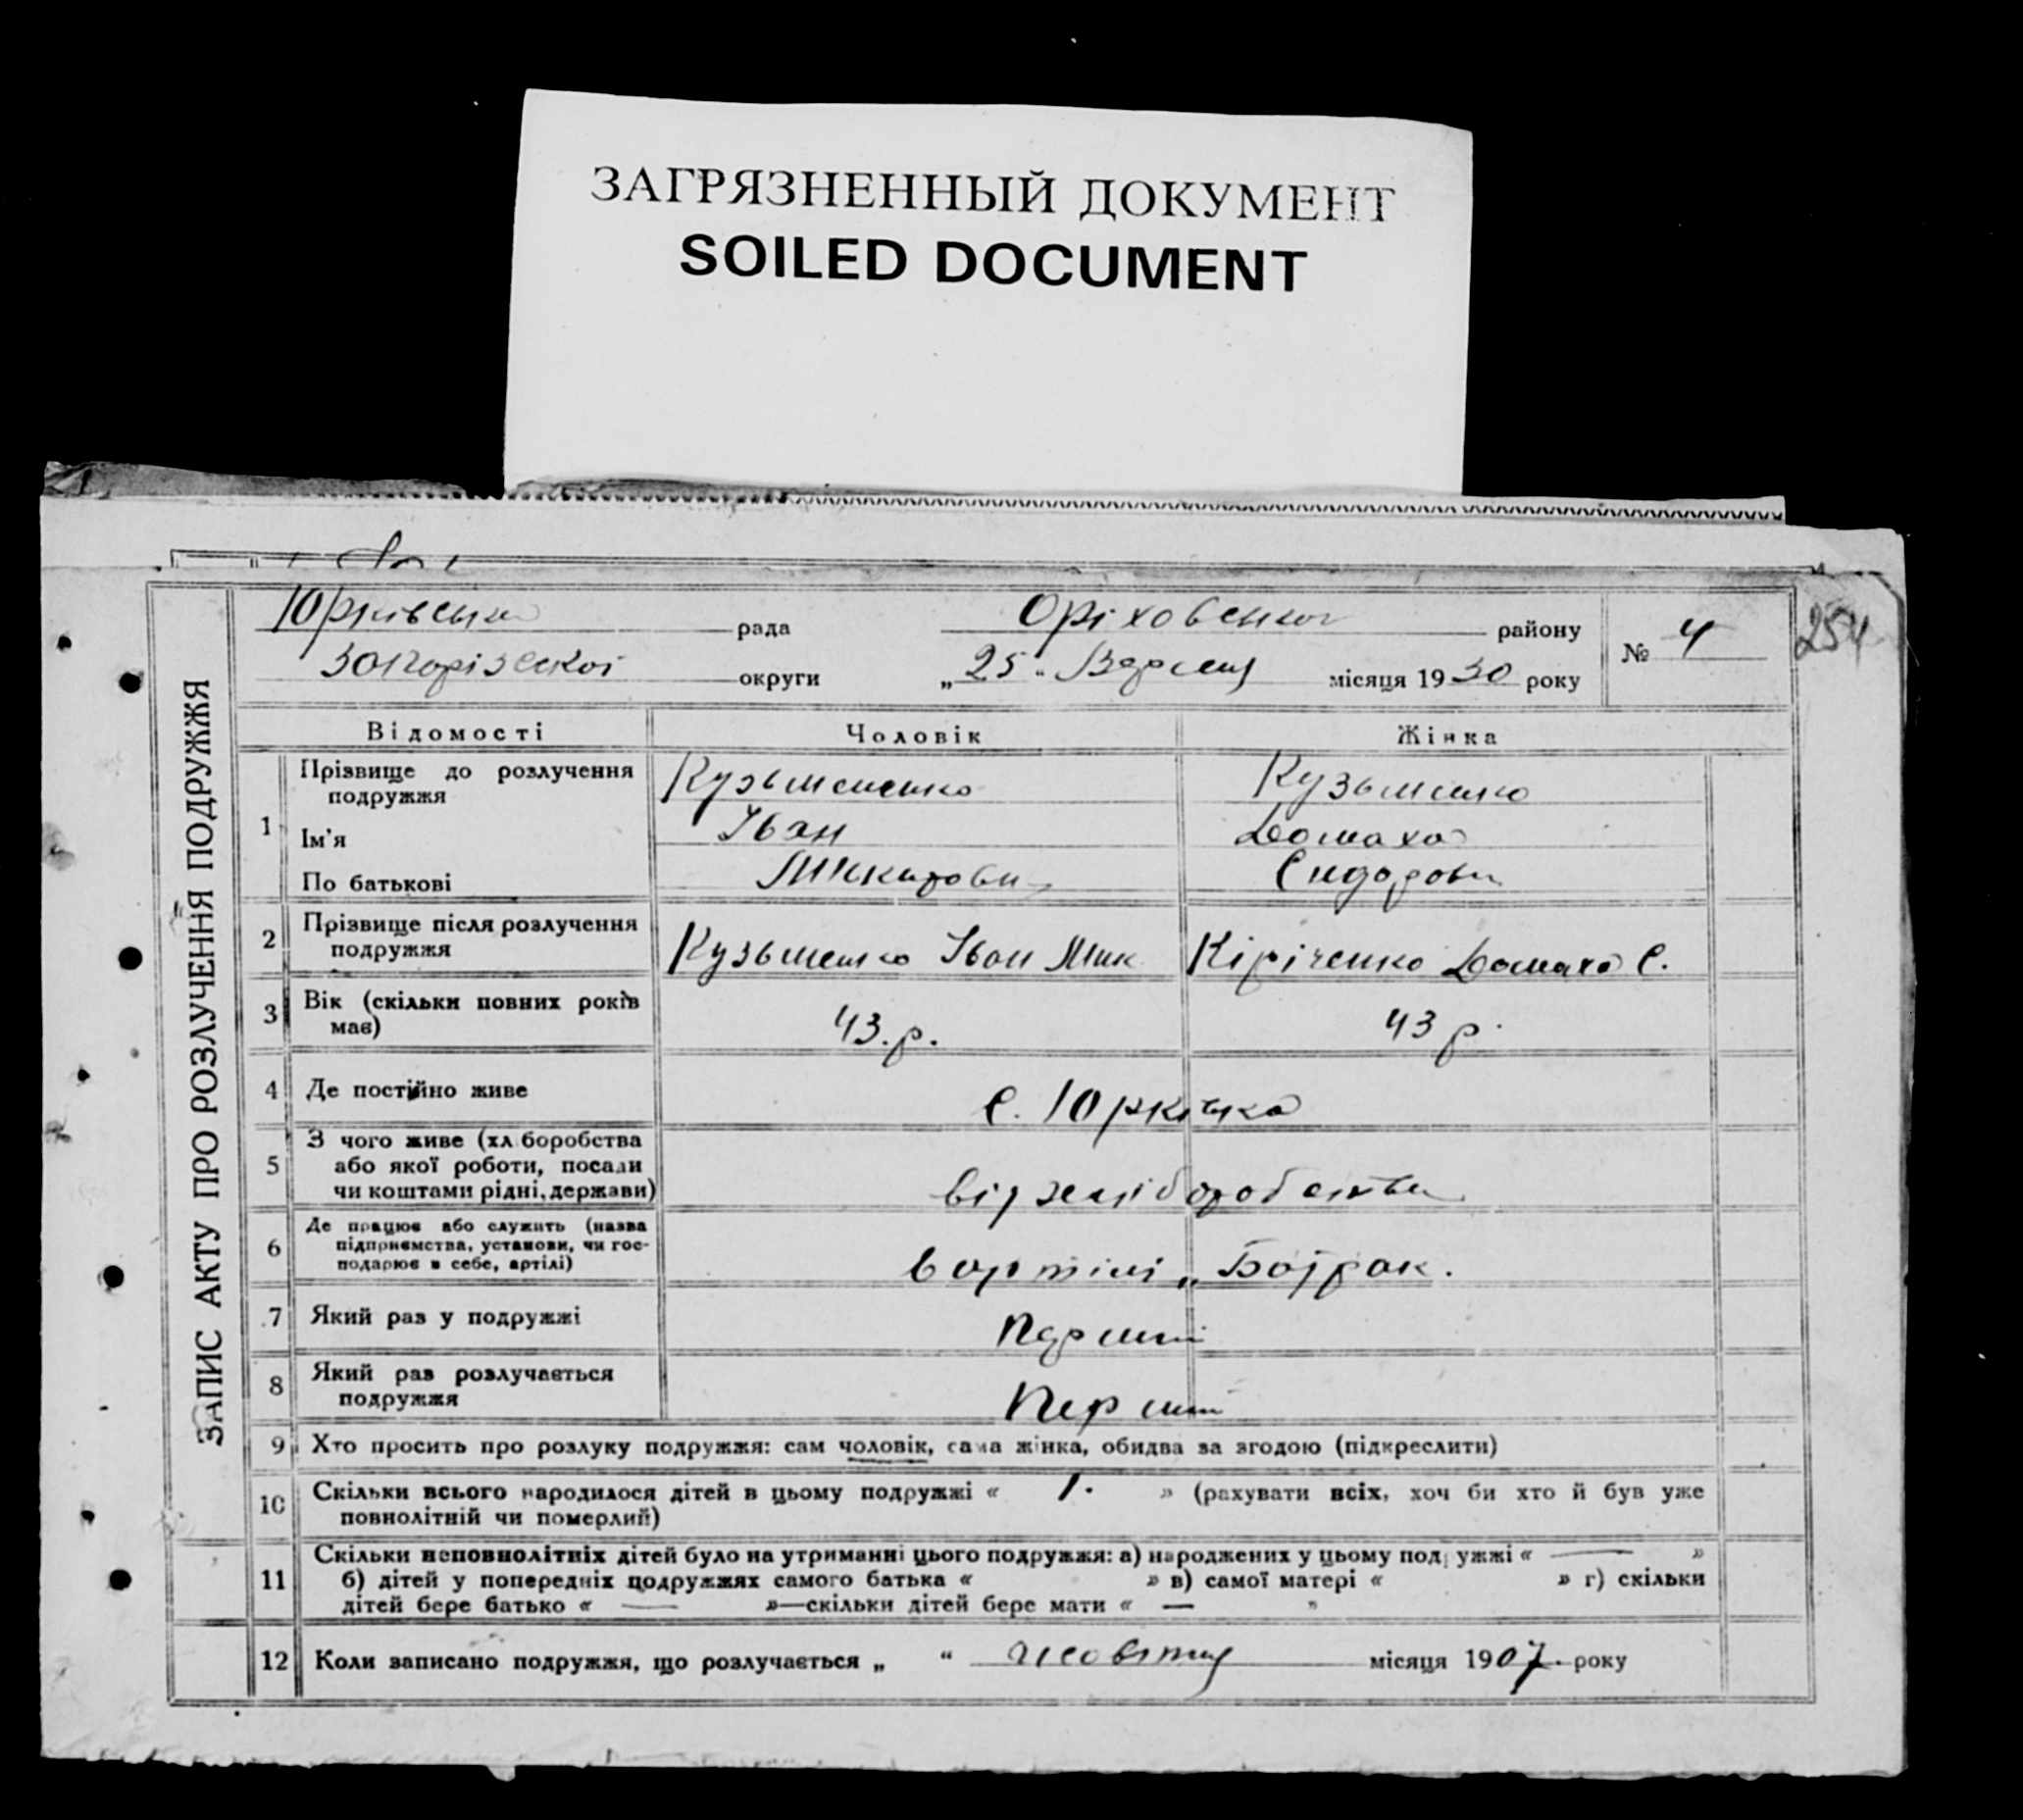 ЗАГРЯЗНЕННЫЙ ДОКУМЕНТ
SOILED DOCUMENT
ЗАПИС АКТУ ПРО РОЗЛУЧЕННЯ ПОДРУЖЖЯ
Юрківська рада Оріховського району № 4 254
Запорізської округи „25“ Вересня місяця 1930 року
Відомості Чоловік Жінка
1 Прізвище до розлучення подружжя Кузьменко Кузьменко
Ім'я Іван Домаха
По батькові Микитович Сидоровна
2 Прізвище після розлучення подружжя Кузьменко Іван Мик Кіріченко Домаха С.
3 Вік (скільки повних років має) 43.р. 43 р.
4 Де постійно живе С. Юрківка
5 З чого живе (хл.боробства або якої роботи, посади чи коштами рідні, держави) від хліборобства
6 Де працює або служить (назва підприємства, установи, чи господарює в себе, артілі) в артілі „Батрак.
7 Який раз у подружжі Перший
8 Який раз розлучається подружжя Перший
9 Хто просить про розлуку подружжя: сам чоловік, сама жінка, обидва за згодою (підкреслити)
10 Скільки всього народилося дітей в цьому подружжі « 1. » (рахувати всіх, хоч би хто й був уже
повнолітній чи померлий)
11 Скільки неповнолітніх дітей було на утриманні цього подружжя: а) народжених у цьому подружжі « — »
б) дітей у попередніх подружжях самого батька « » в) самої матері « » г) скільки
дітей бере батько « — »—скільки дітей бере мати « — »
12 Коли записано подружжя, що розлучається „ “ жовтня місяця 1907. року